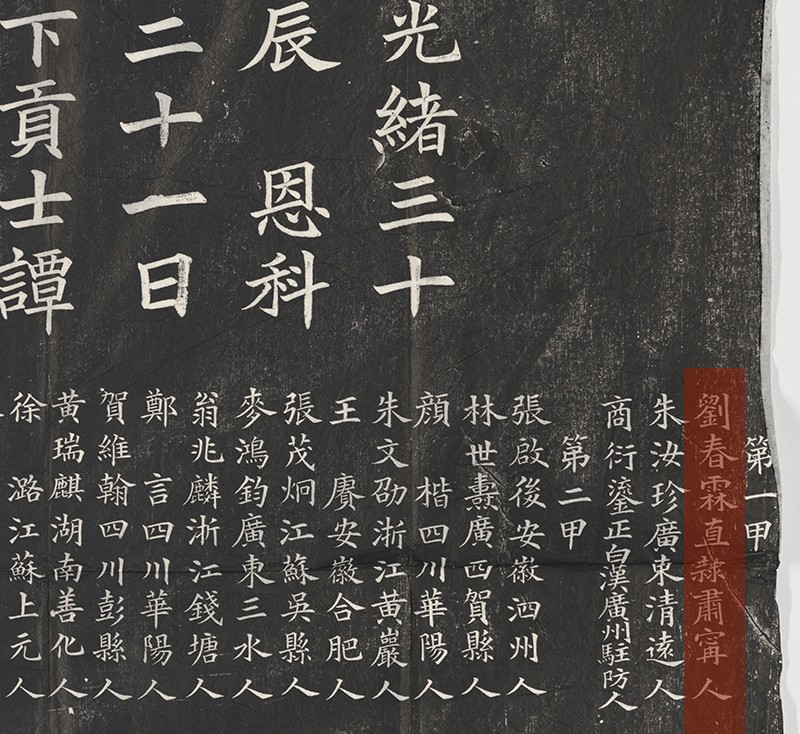 光緒三十
辰 恩科
二十一日
下貢士譚
第一甲
劉春霖直隸肅寧人
朱汝珍廣東清遠人
商衍鎏正白漢廣州駐防人
第二甲
張啟後安徽泗州人
林世燾廣西賀縣人
顔 楷四川華陽人
朱文劭浙江黃巖人
王 賡安徽合肥人
張茂炯江蘇吳縣人
麥鴻鈞廣東三水人
翁兆麟浙江錢塘人
鄭 言四川華陽人
賀維翰四川彭縣人
黃瑞麒湖南善化人
徐 潞江蘇上元人